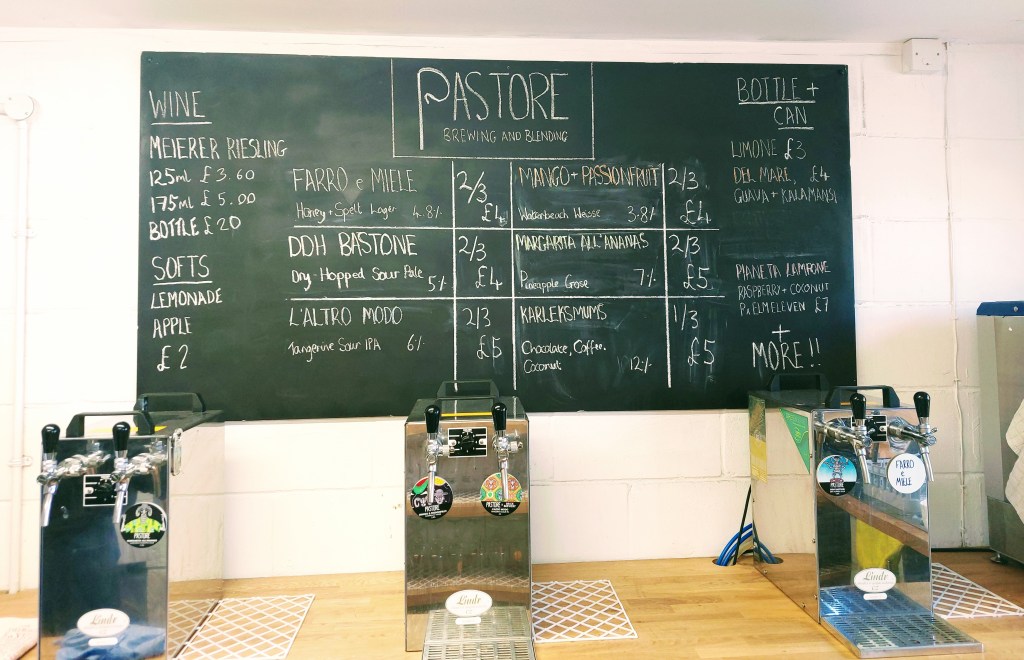 PASTORE
BREWING AND BLENDING
WINE
MEIERER RIESLING
125ml £3.60
175ml £5.00
BOTTLE £20
SOFTS
LEMONADE
APPLE
£2
FARRO e MIELE
2/3
Honey + Spelt Lager 4.8%
£4
DDH BASTONE
2/3
Dry-Hopped Sour Pale 5%
£4
L'ALTRO MODO
2/3
Tangerine Sour IPA 6%
£5
MANGO + PASSIONFRUIT
2/3
Waterbeach Weisse 3.8%
£4
MARGARITA ALL'ANANAS
2/3
Pineapple Gose 7%
£5
KARLEKSMUMS
1/3
Chocolate, Coffee,
£5
Coconut 12%
BOTTLE +
CAN
LIMONE £3
DEL MARE, £4
GUAVA + KALAMANSI
PIANETA LAMPONE
RASPBERRY + COCONUT
PxELMELEVEN £7
+
MORE!!
PASTORE
Lindr
PASTORE
PASTORE
Lindr
PASTORE
FARRO
e
MIELE
Lindr